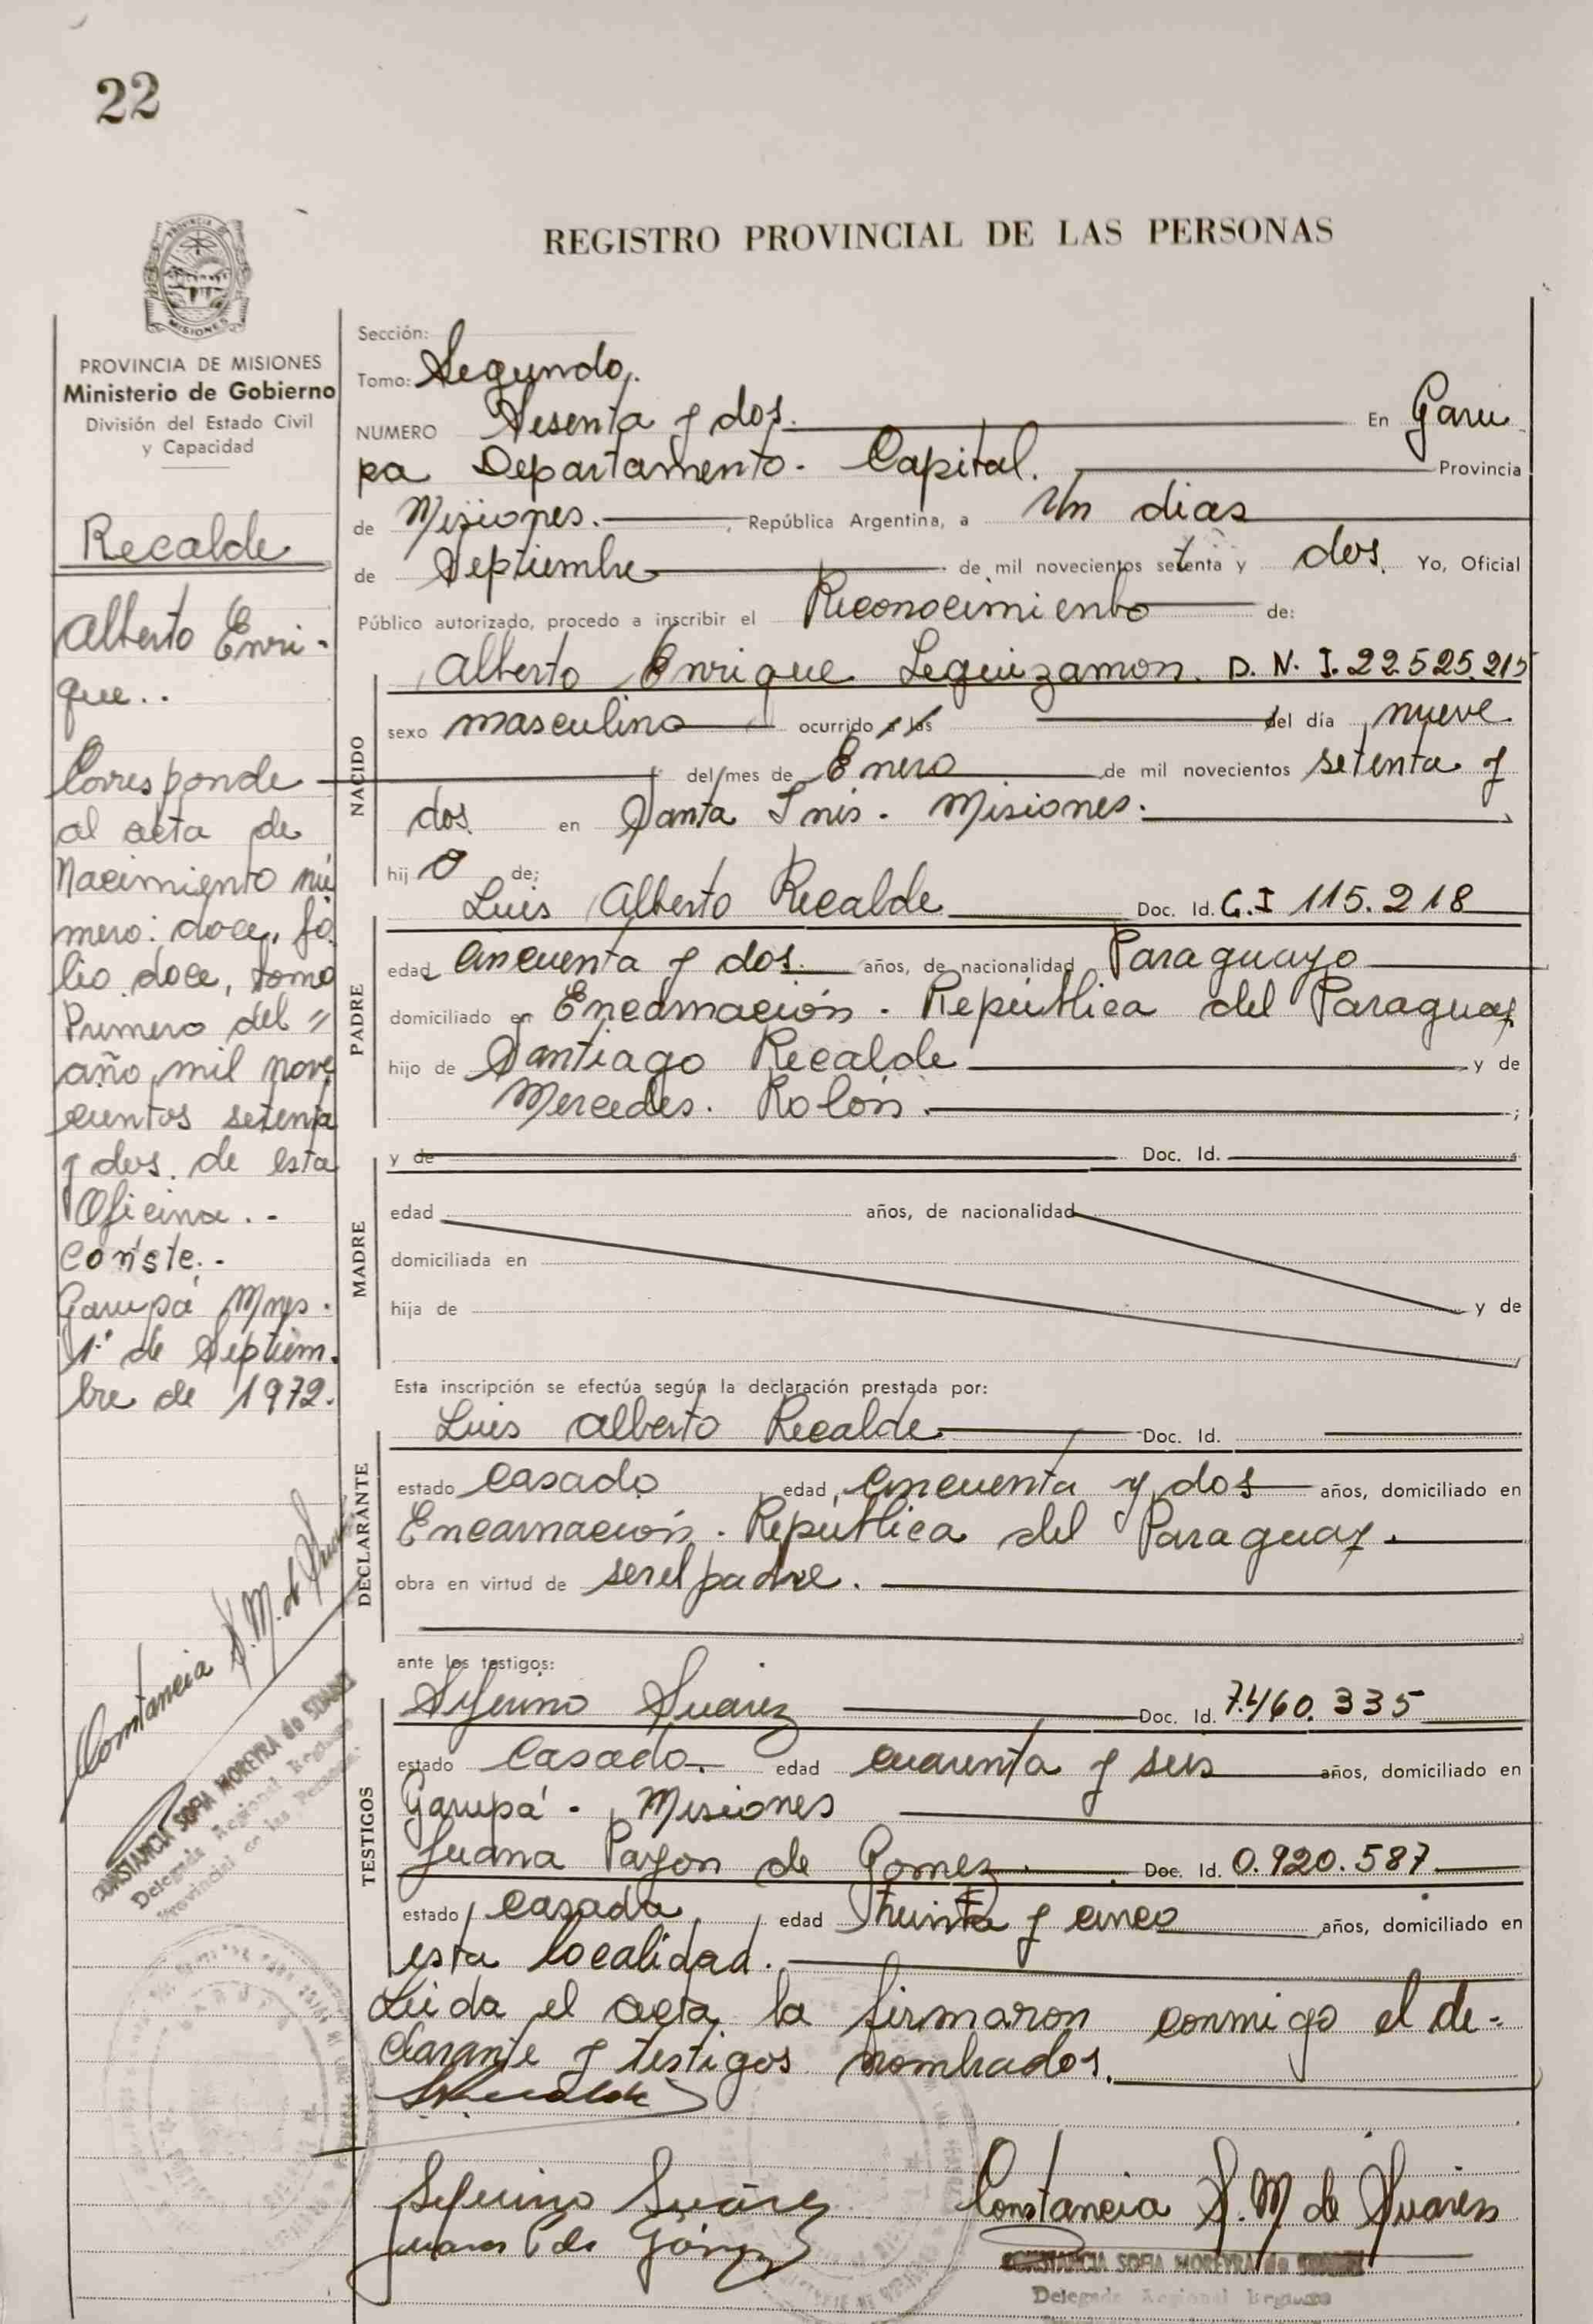 22
REGISTRO PROVINCIAL DE LAS PERSONAS
PROVINCIA
MISIONES
PROVINCIA DE MISIONES
Ministerio de Gobierno
División del Estado Civil
y Capacidad
Recalde
Alberto Enri-
que..
Corresponde
al acta de
Nacimiento nú
mero: doce, fo
lio doce, tomo
Primero del "
año mil nove
cientos setenta
y dos de esta
Oficina..-
Conste.-
Garupá Mnes.
1º de Septiem.
bre de 1972.
Constancia S. M. de
CONSTANCIA SOFIA MOREYRA de SUAREZ
Delegada Regional Registro
Provincial de las Personas.
Sección:
Tomo: Segundo.
NUMERO Sesenta y dos. En Garu
pa Departamento. Capital. Provincia
de Misiones. , República Argentina, a Un dias
de Septiembre de mil novecientos setenta y dos. Yo, Oficial
Público autorizado, procedo a inscribir el Reconocimiento de:
NACIDO
Alberto Enrique Leguizamon. D. N. I. 22.525.215
sexo masculino ocurrido a las del día nueve
del mes de Enero de mil novecientos setenta y
dos en Santa Inés. Misiones.
hijo de:
PADRE
Luis Alberto Recalde Doc. Id. C.I 115.218
edad cincuenta y dos. años, de nacionalidad Paraguayo
domiciliado en Encarnación. República del Paraguay
hijo de Santiago Recalde y de
Mercedes. Rolón.
MADRE
y de Doc. Id.
edad años, de nacionalidad
domiciliada en
hija de y de
Esta inscripción se efectúa según la declaración prestada por:
DECLARANTE
Luis Alberto Recalde Doc. Id.
estado casado edad cincuenta y dos años, domiciliado en
Encarnación. República del Paraguay.
obra en virtud de ser el padre.
ante los testigos:
TESTIGOS
Suarez Doc. Id. 7.460.335
estado casado. edad cuarenta y seis años, domiciliado en
Garupá - Misiones
Juana Payon de Gomez Doc. Id. 0.920.587
estado casada edad Treinta y cinco años, domiciliado en
esta localidad.
Leida el acta la firmaron conmigo el de-
clarante y testigos nombrados.
Recalde
Suárez
Juana P de Gómez
Constancia S. M de Suarez
CONSTANCIA SOFIA MOREYRA de SUAREZ
Delegada Regional Registro